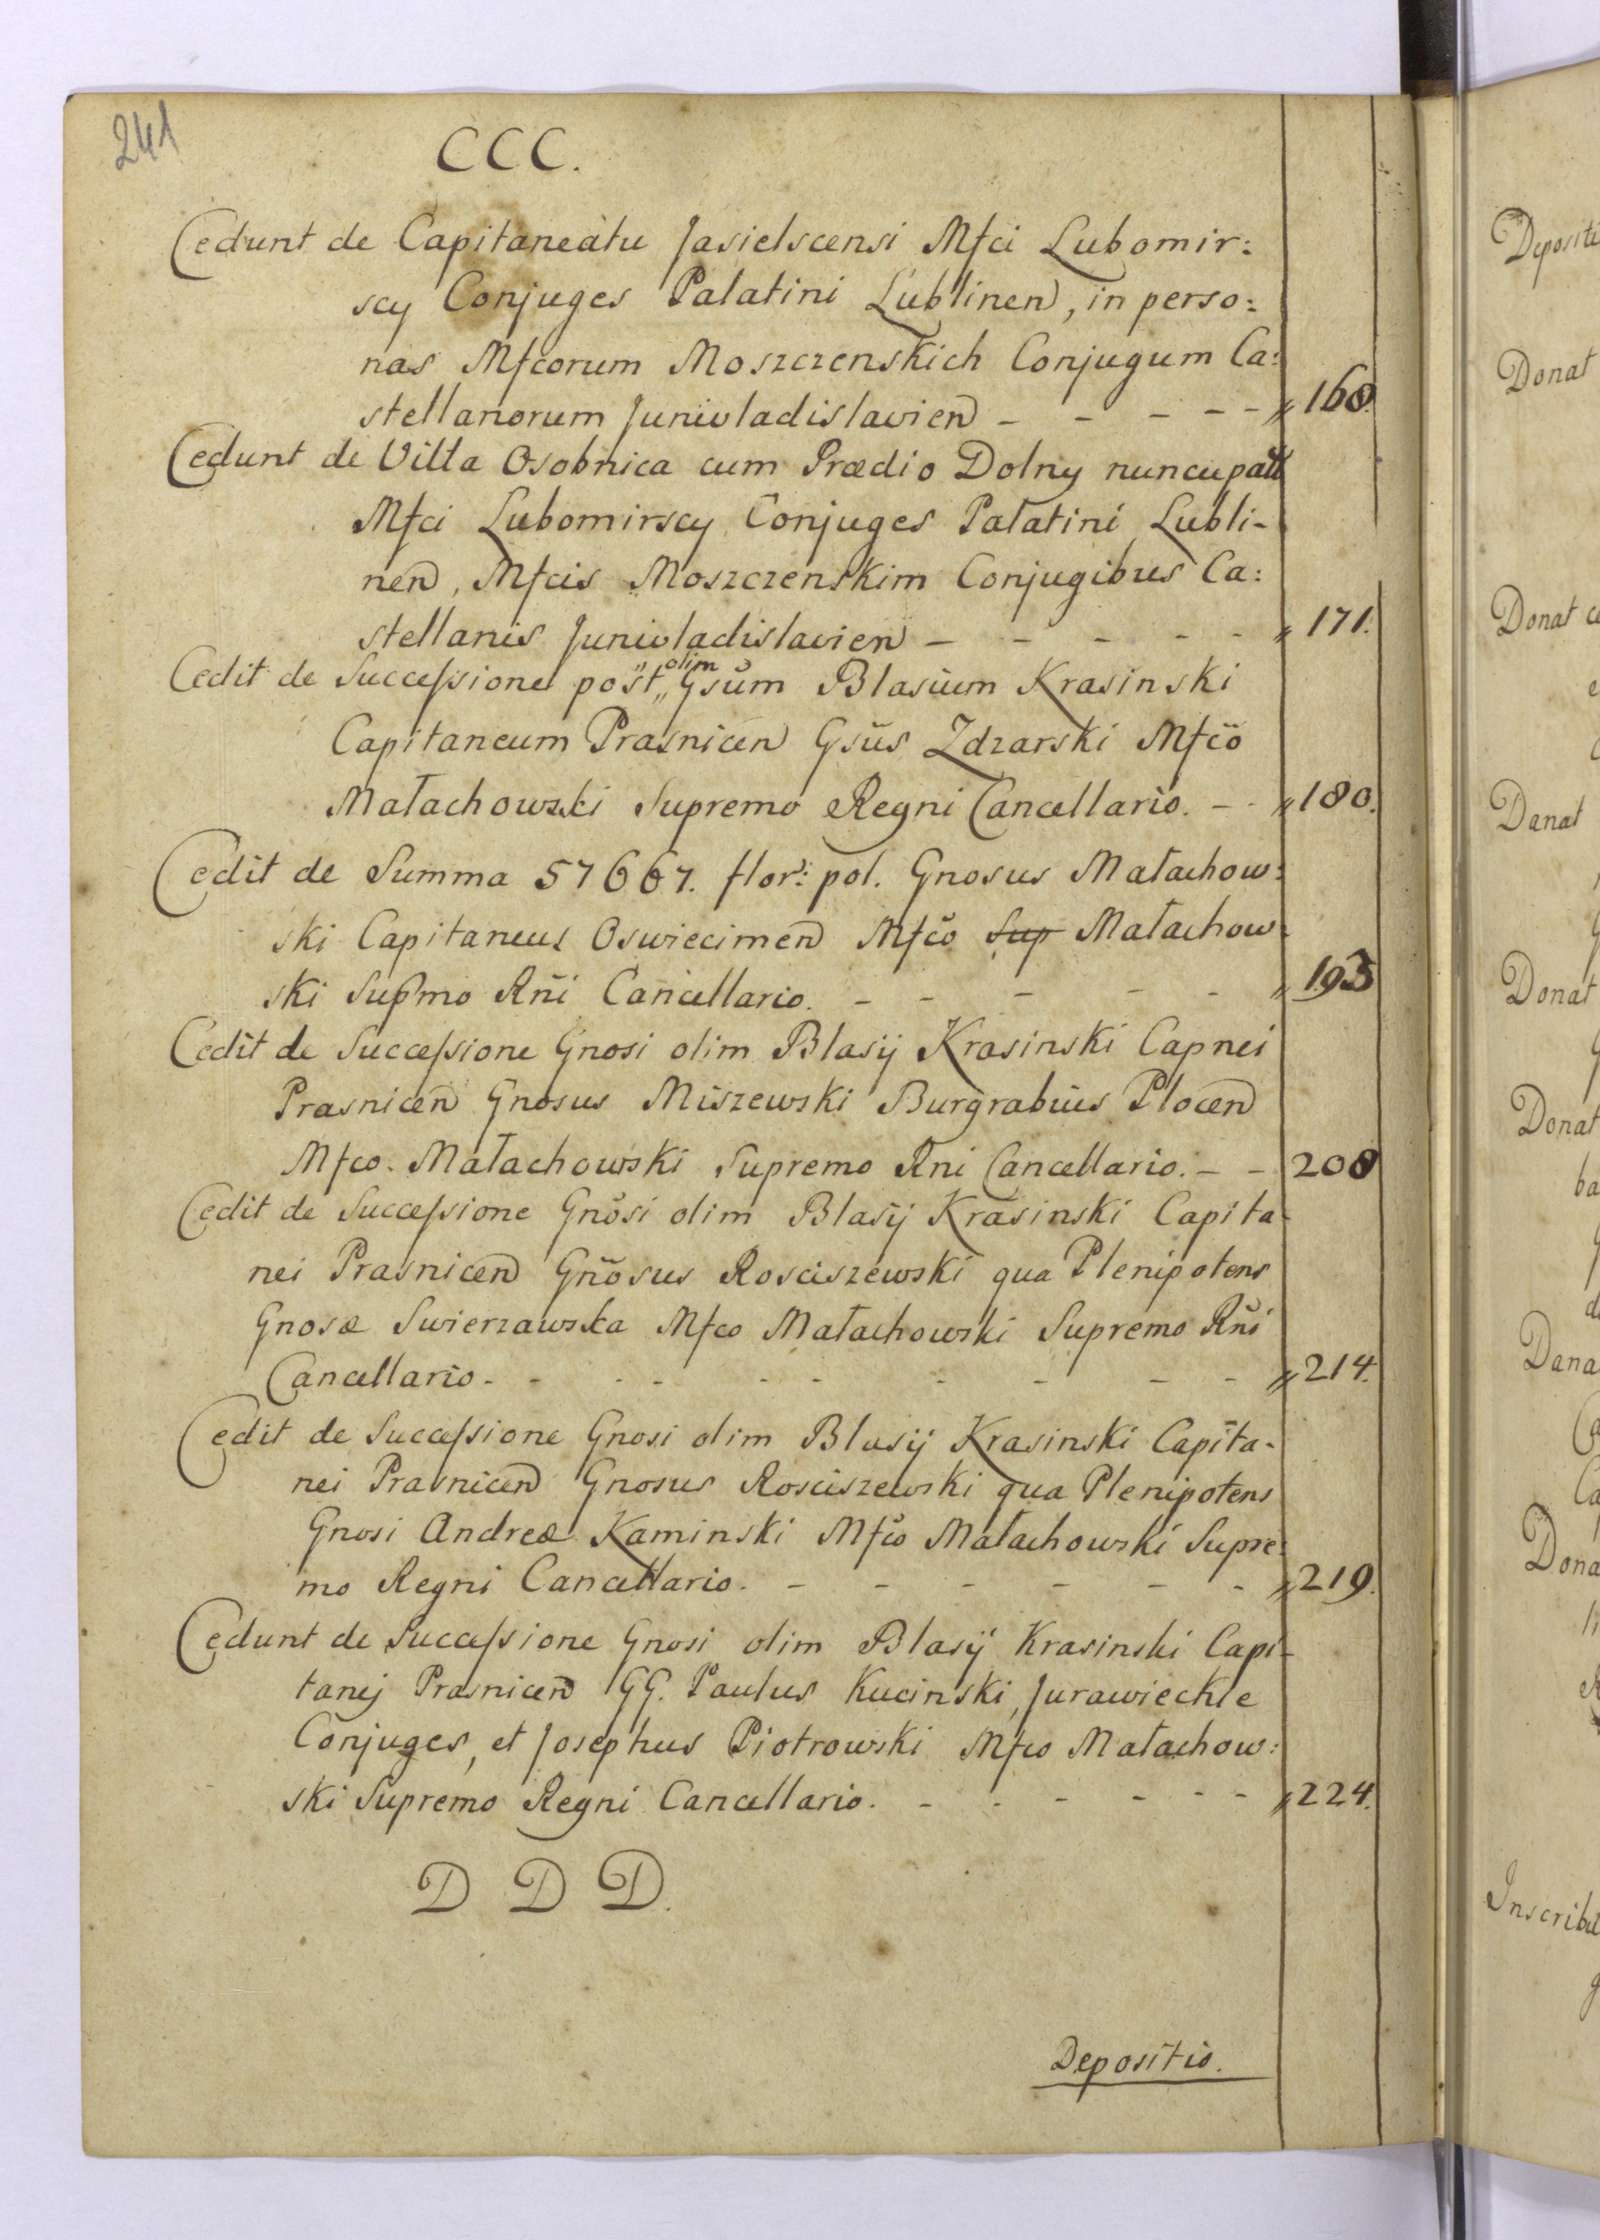 241
CCC.
Cedunt de Capitaneatu Jasielscensi Mfci Lubomir:
scy Conjuges Palatini Lublinen, in perso:
nas Mfcorum Moszczenskich Conjugum Ca:
stellanorum Junivladislavien - - - - - 168.
Cedunt de Villa Osobnica cum Prædio Dolny nuncupatt
Mfci Lubomirscy Conjuges Palatini Lubli-
nen, Mfcis Moszczenskim Conjugibus Ca:
stellanis Junivladislavien - - - - - 171.
Cedit de Successione post olim Gsum Blasium Krasinski
Capitaneum Prasnicen Gsus Zdzarski Mfco
Małachowski Supremo Regni Cancellario. - - 180.
Cedit de Summa 57667. flor: pol. Gnosus Małachow:
ski Capitaneus Oswiecimen Mfco Sup Małachow:
ski Supmo Rni Cancellario. - - - - - 193
Cedit de Successione Gnosi olim Blasij Krasinski Capnei
Prasnicen Gnosus Miszewski Burgrabius Plocen
Mfco. Małachowski Supremo Rni Cancellario. - - 208
Cedit de Successione Gnosi olim Blasij Krasinski Capita-
nei Prasnicen Gnosus Rosciszewski qua Plenipotens
Gnosæ Swierzawska Mfco Małachowski Supremo Rni
Cancellario - - - - - - - - - - 214.
Cedit de Successione Gnosi olim Blasij Krasinski Capita-
nei Prasnicen Gnosus Rosciszewski qua Plenipotens
Gnosi Andreæ Kaminski Mfco Małachowski Supre:
mo Regni Cancellario. - - - - - - 219.
Cedunt de Successione Gnosi olim Blasij Krasinski Capi-
tanej Prasnicen GG. Paulus Kucinski, Jurawieckie
Conjuges, et Josephus Piotrowski Mfco Małachow:
ski Supremo Regni Cancellario. - - - - - - 224.
D D D.
Depositio.
Depositi
Donat
Donat
Donat
Donat
Donat
ba
Dona
Ca
Dona
Inscribi